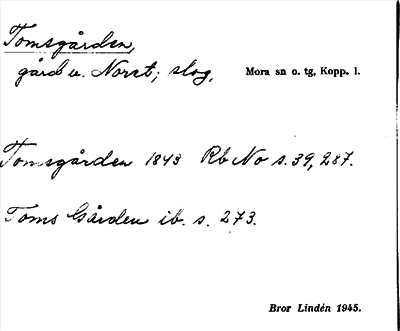 Tomsgården,
gård u. Noret; slog. Mora sn o. tg, Kopp. l.
Tomsgården 1843 Rb No s. 39, 287.
Toms Gården ib. s. 273.
Bror Lindén 1945.